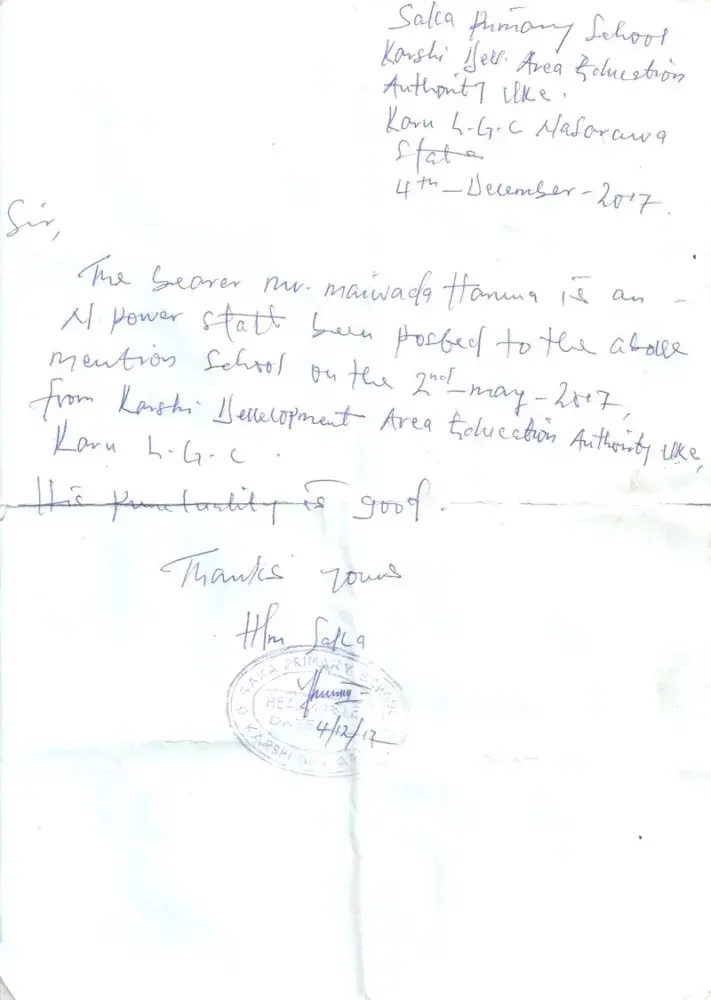 Saka Primary School
Karshi Dev. Area Education
Authority Uke.
Karu L.G.C Nasarawa
State
4th - December - 2017.
Sir,
The bearer mr. maiwada Haruna is an -
N power staff been posted to the above
mention School on the 2nd - may - 2017,
from Karshi Development Area Education Authority Uke,
Karu L.G.C.
His punctuality is good.
Thanks yours
H/m Saka
SAKA PRIMARY SCHOOL
HEADMASTER
DATE 4/12/17
KARSHI